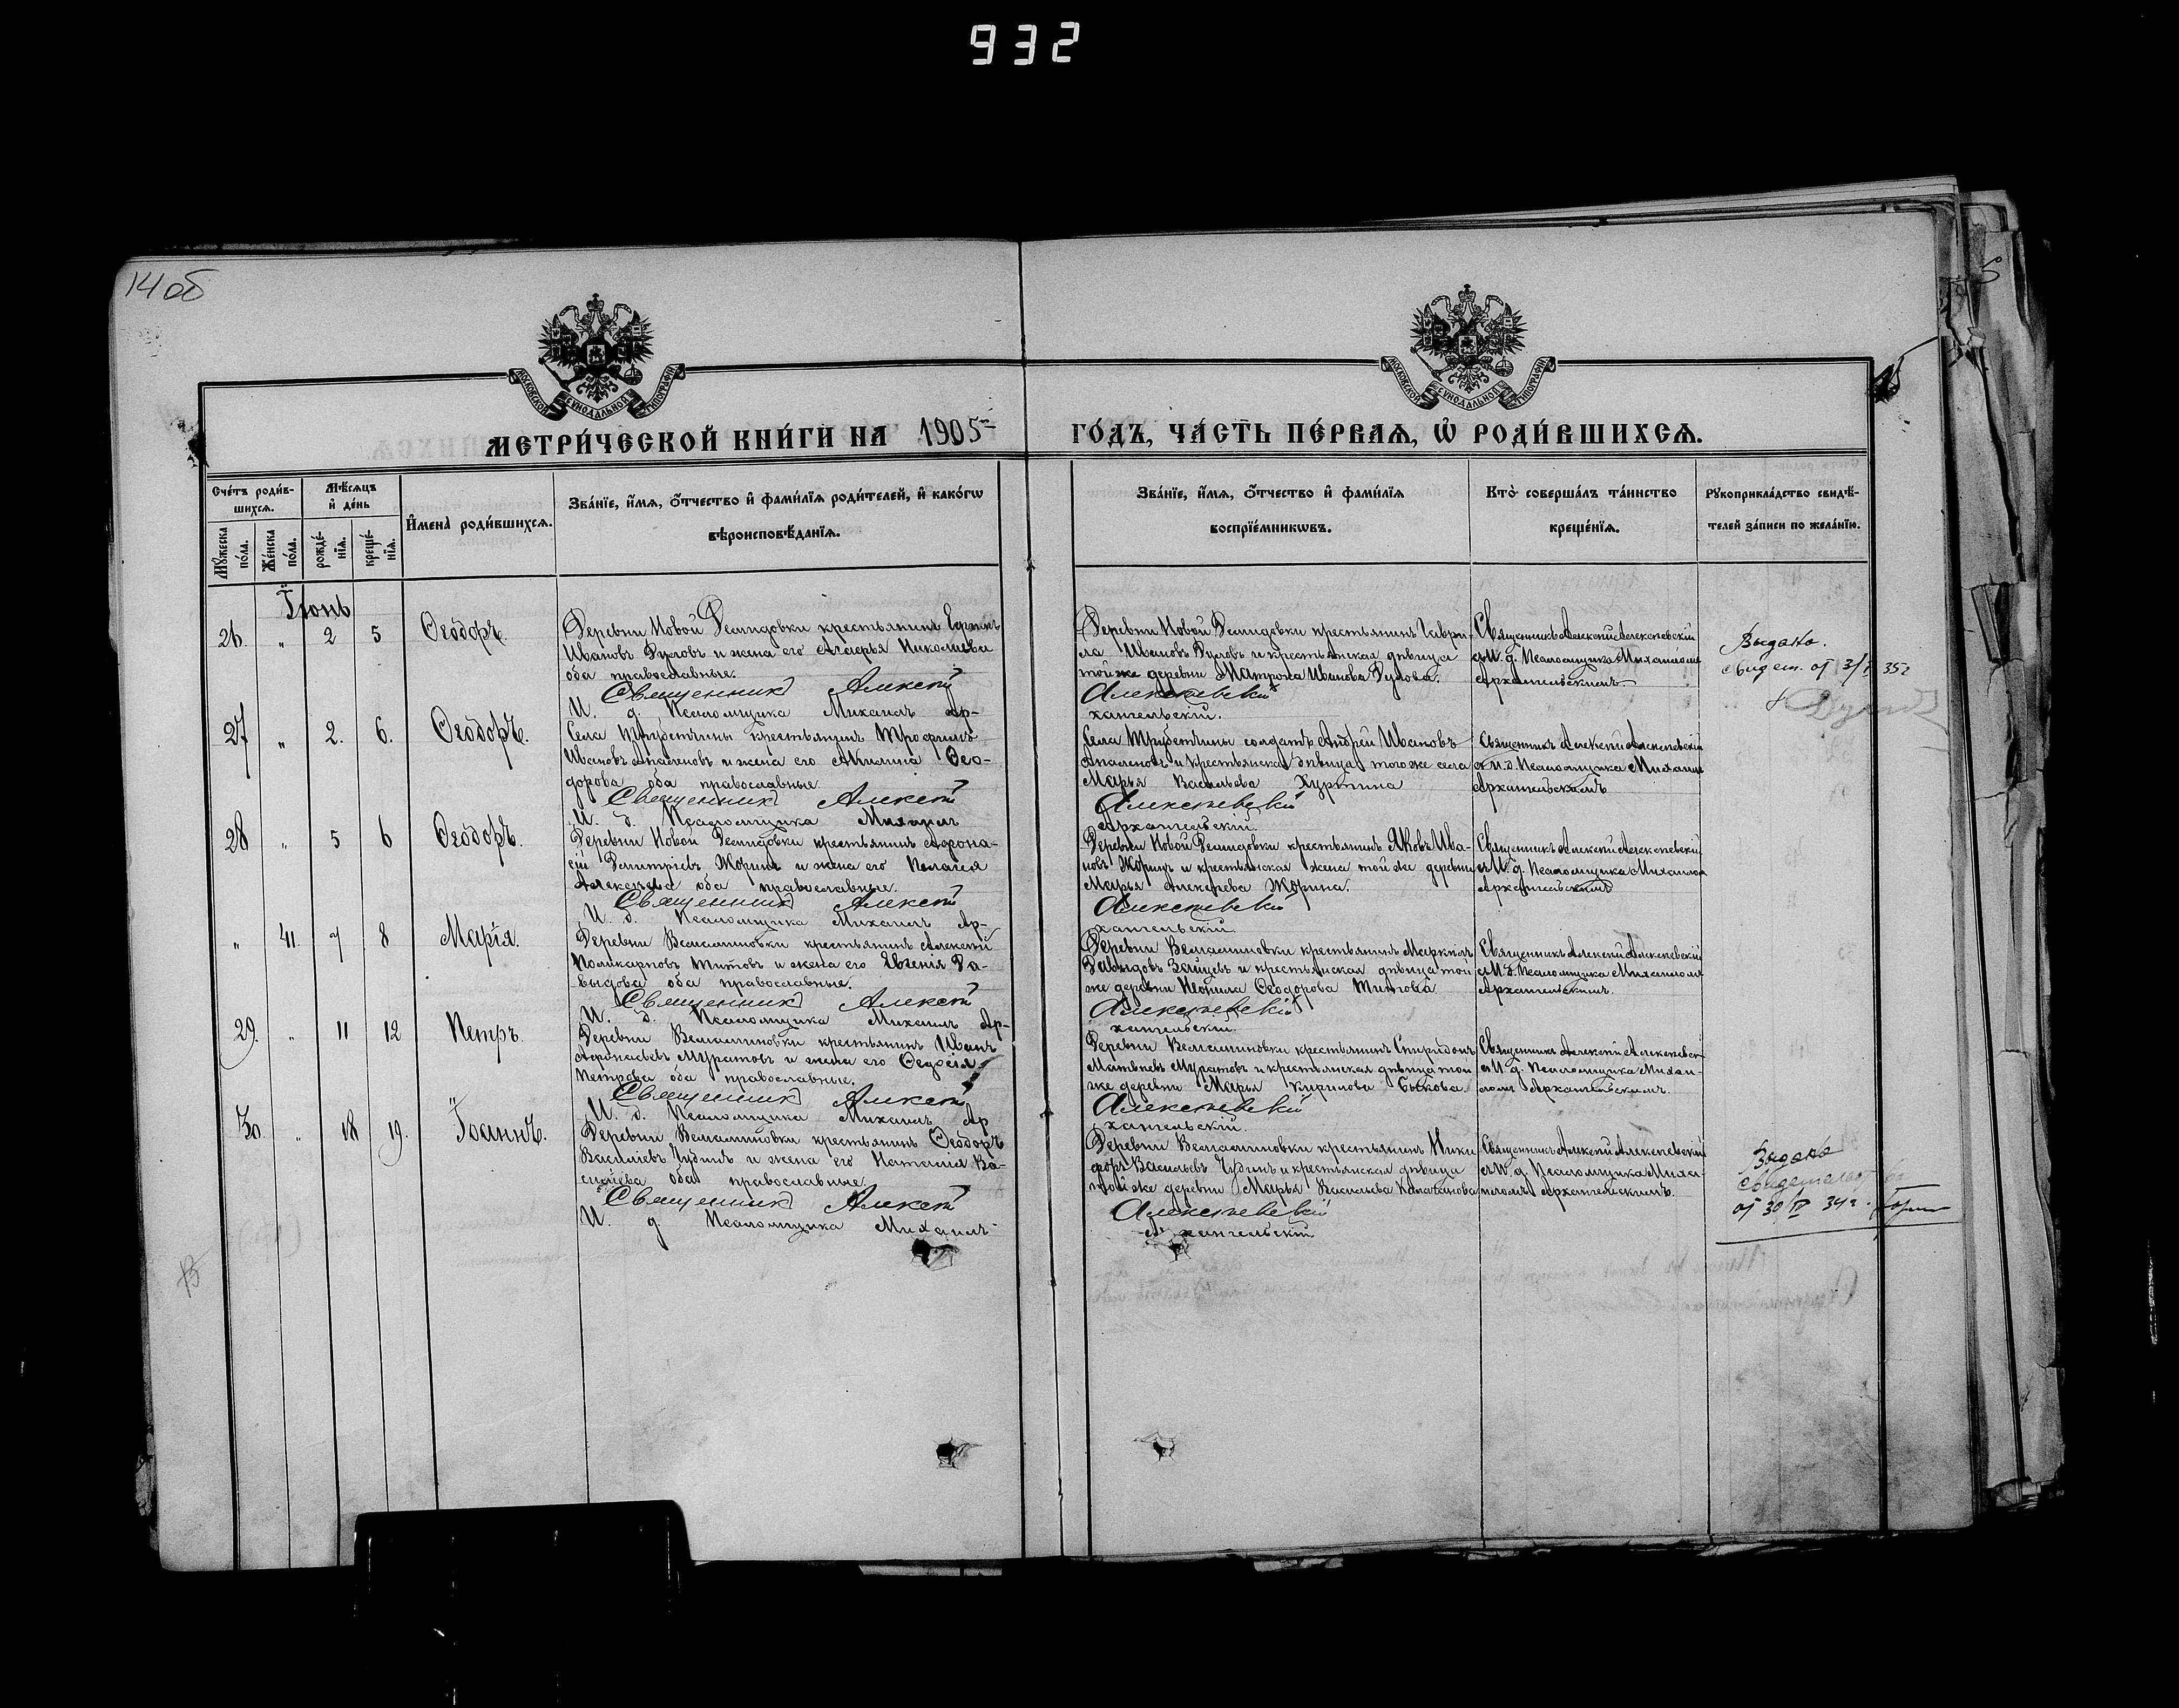 932
14 об
МОСКОВСКОЙ СѴНОДАЛЬНОЙ ТИПОГРАФІИ
МОСКОВСКОЙ СѴНОДАЛЬНОЙ ТИПОГРАФІИ
МЕТРИ́ЧЕСКОЙ КНИ́ГИ НА 1905 ГО́ДЪ, ЧА́СТЬ ПЕ́РВАѦ, Ѡ҆ РОДИ́ВШИХСѦ.
Сче́тъ роди́в-
шихсѧ.
Мꙋ́жеска по́ла.
Же́нска по́ла.
Мѣ́сѧцъ
и҆ де́нь
рожде́-
нїѧ.
креще́-
нїѧ.
И҆мена̀ роди́вшихсѧ.
Зва́нїе, и҆́мѧ, ѻ҆́тчество и҆ фами́лїѧ роди́телей, и҆ како́гѡ
вѣроисповѣ́данїѧ.
Зва́нїе, и҆́мѧ, ѻ҆́тчество и҆ фами́лїѧ
воспрїе́мникѡвъ.
Кто̀ соверша́лъ та́инство
креще́нїѧ.
Рꙋкоприкла́дство свидѣ́-
телей за́писи по жела́нїю.
Іюнь
26. " 2 5 Ѳеодоръ.
Деревни Новой Демидовки крестьянинъ
Ивановъ Дуловъ и жена его Николаева
оба православные.
Священникъ Алексѣй
И. д. Псаломщика Михаилъ Ар-
Деревни Новой Демидовки крестьянинъ Гаври-
ла Ивановъ Дуловъ и крестьянская дѣвица
той же деревни Матрона Иванова Дулова.
Алексѣевскій
хангельскій.
Священникъ Алексѣй Алексѣевскій
съ И. д. Псаломщика Михаиломъ
Архангельскимъ.
Выдано
свидет. от
27 " 2. 6. Ѳеодоръ.
Села Трубетчины крестьянинъ Трофимъ
Ивановъ и жена его Акилина Ѳео-
дорова оба православные
Священникъ Алексѣй
И. д. Псаломщика Михаилъ
Села Трубетчины солдатъ Андрей Ивановъ
и крестьянская дѣвица того же села
Марья Васильева
Алексѣевскій
Архангельскій.
Священникъ Алексѣй Алексѣевскій
съ И. д. Псаломщика Михаи
Архангельскимъ
28 " 5 6 Ѳеодоръ.
Деревни Новой Демидовки крестьянинъ Аѳона-
сій Димитріевъ Жоринъ и жена его Пелагея
Алексѣева оба православные.
Священникъ Алексѣй
И. д. Псаломщика Михаилъ Ар-
Деревни Новой Демидовки крестьянинъ Яковъ Ива-
новъ Жоринъ и крестьянская жена той же деревни
Марья Алексѣева Жорина.
Алексѣевскій
хангельскій
Священникъ Алексѣй Алексѣевскій
съ И. д. Псаломщика Михаиломъ
Архангельскимъ
" 41. 7 8 Марія.
Деревни Вельаминовки крестьянинъ Алексѣй
Поликарповъ Титовъ и жена его Евгенія Да-
выдова оба православные.
Священникъ Алексѣй
И. д. Псаломщика Михаилъ Ар-
Деревни Вельаминовки крестьянинъ Маркилъ
Давыдовъ Зайцевъ и крестьянская дѣвица той
же деревни Неонила Ѳеодорова Титова
Алексѣевскій
хангельскій.
Священникъ Алексѣй Алексѣевскій
съ И. д. Псаломщика Михаиломъ
Архангельскимъ.
29. " 11 12 Петръ.
Деревни Вельаминовки крестьянинъ Иванъ
Аѳонасьевъ Муратовъ и жена его Ѳедосія
Петрова оба православные.
Священникъ Алексѣй
И. д. Псаломщика Михаилъ Ар
Деревни Вельаминовки крестьянинъ Спиридонъ
Матвѣевъ Муратовъ и крестьянская дѣвица той
же деревни Марья Кирилова Быкова.
Алексѣевскій
хангельскій.
Священникъ Алексѣй Алексѣевскі
съ И. д. Псаломщика Михаи-
ломъ Архангельскимъ.
30. " 18 19. Іоаннъ.
Деревни Вельаминовки крестьянинъ Ѳеодоръ
Василіевъ Чудинъ и жена его Наталія Ва-
силіева оба православные.
Священникъ Алексѣй
И. д. Псаломщика Михаилъ
Деревни Вельаминовки крестьянинъ Ники
форъ Васильевъ Чудинъ и крестьянская дѣвица
той же деревни Марья Васильева
Алексѣевскій
Архангельскій
Священникъ Алексѣй Алексѣевскій
съ И. д. Псаломщика Миха-
иломъ Архангельскимъ.
Выдано
свидетельство
от 30/IV 34 г.